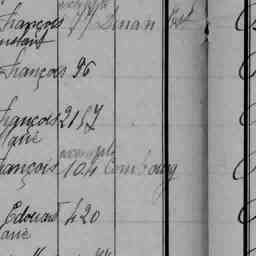 François 77 Dinan Est
Constant
François 96
François 2157
Marie
François 104 Combourg
Edouard 420
Marie